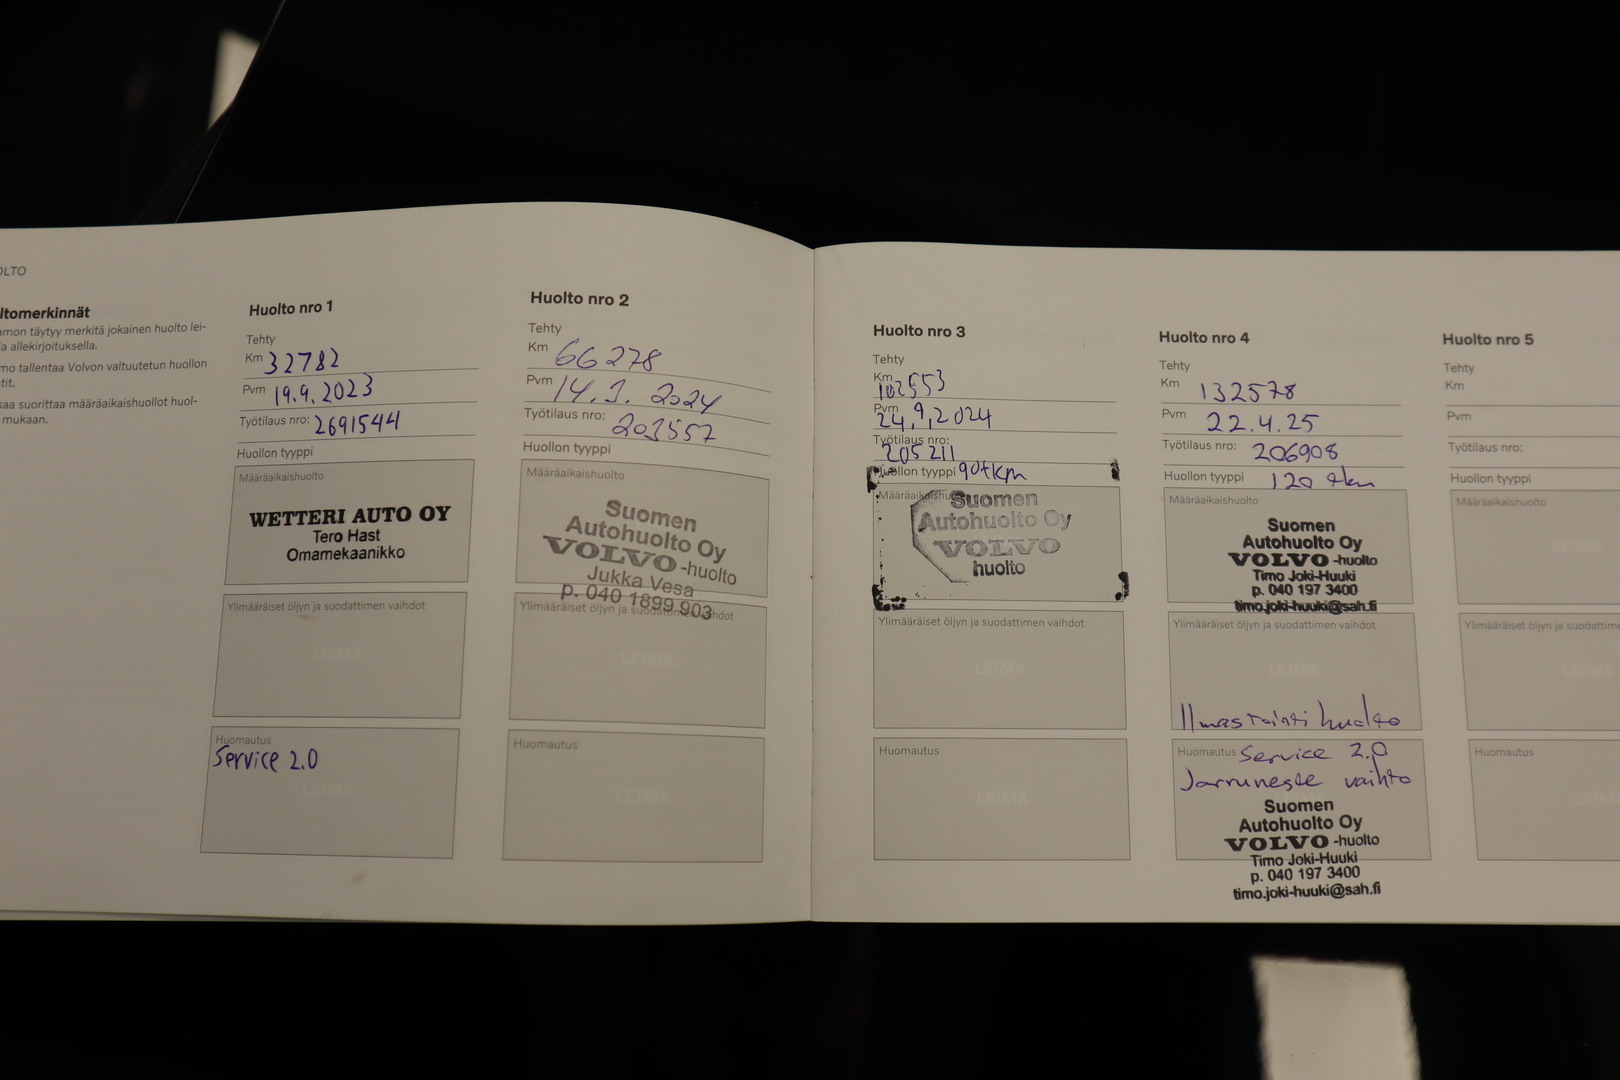 OLTO
ltomerkinnät
mon täytyy merkitä jokainen huolto lei-
a allekirjoituksella.
mo tallentaa Volvon valtuutetun huollon
tit.
aa suorittaa määräaikaishuollot huol-
mukaan.
Huolto nro 1
Tehty
Km 32782
Pvm 19.9.2023
Työtilaus nro: 2691544
Huollon tyyppi
Määräaikaishuolto
WETTERI AUTO OY
Tero Hast
Omamekaanikko
Ylimääräiset öljyn ja suodattimen vaihdot
LEIMA
Huomautus
Service 2.0
LEIMA
Huolto nro 2
Tehty
Km 66278
Pvm 14.3.2024
Työtilaus nro: 203557
Huollon tyyppi
Määräaikaishuolto
Suomen
Autohuolto Oy
VOLVO-huolto
Jukka Vesa
p. 040 1899 903
Ylimääräiset öljyn ja suodattimen vaihdot
LEIMA
Huomautus
LEIMA
Huolto nro 3
Tehty
Km 102553
Pvm 24.9.2024
Työtilaus nro: 205211
Huollon tyyppi 90tkm
Määräaikaishu
Suomen
Autohuolto Oy
VOLVO
huolto
Ylimääräiset öljyn ja suodattimen vaihdot
LEIMA
Huomautus
LEIMA
Huolto nro 4
Tehty
Km 132578
Pvm 22.4.25
Työtilaus nro: 206908
Huollon tyyppi 120 tkm
Määräaikaishuolto
Suomen
Autohuolto Oy
VOLVO-huolto
Timo Joki-Huuki
p. 040 197 3400
timo.joki-huuki@sah.fi
Ylimääräiset öljyn ja suodattimen vaihdot
LEIMA
Ilmastointi huolto
Huomautus Service 2.0
Jarruneste vaihto
Suomen
Autohuolto Oy
VOLVO-huolto
Timo Joki-Huuki
p. 040 197 3400
timo.joki-huuki@sah.fi
Huolto nro 5
Tehty
Km
Pvm
Työtilaus nro:
Huollon tyyppi
Määräaikaishuolto
LEIMA
Ylimääräiset öljyn ja suodattime
LEIMA
Huomautus
LEIMA